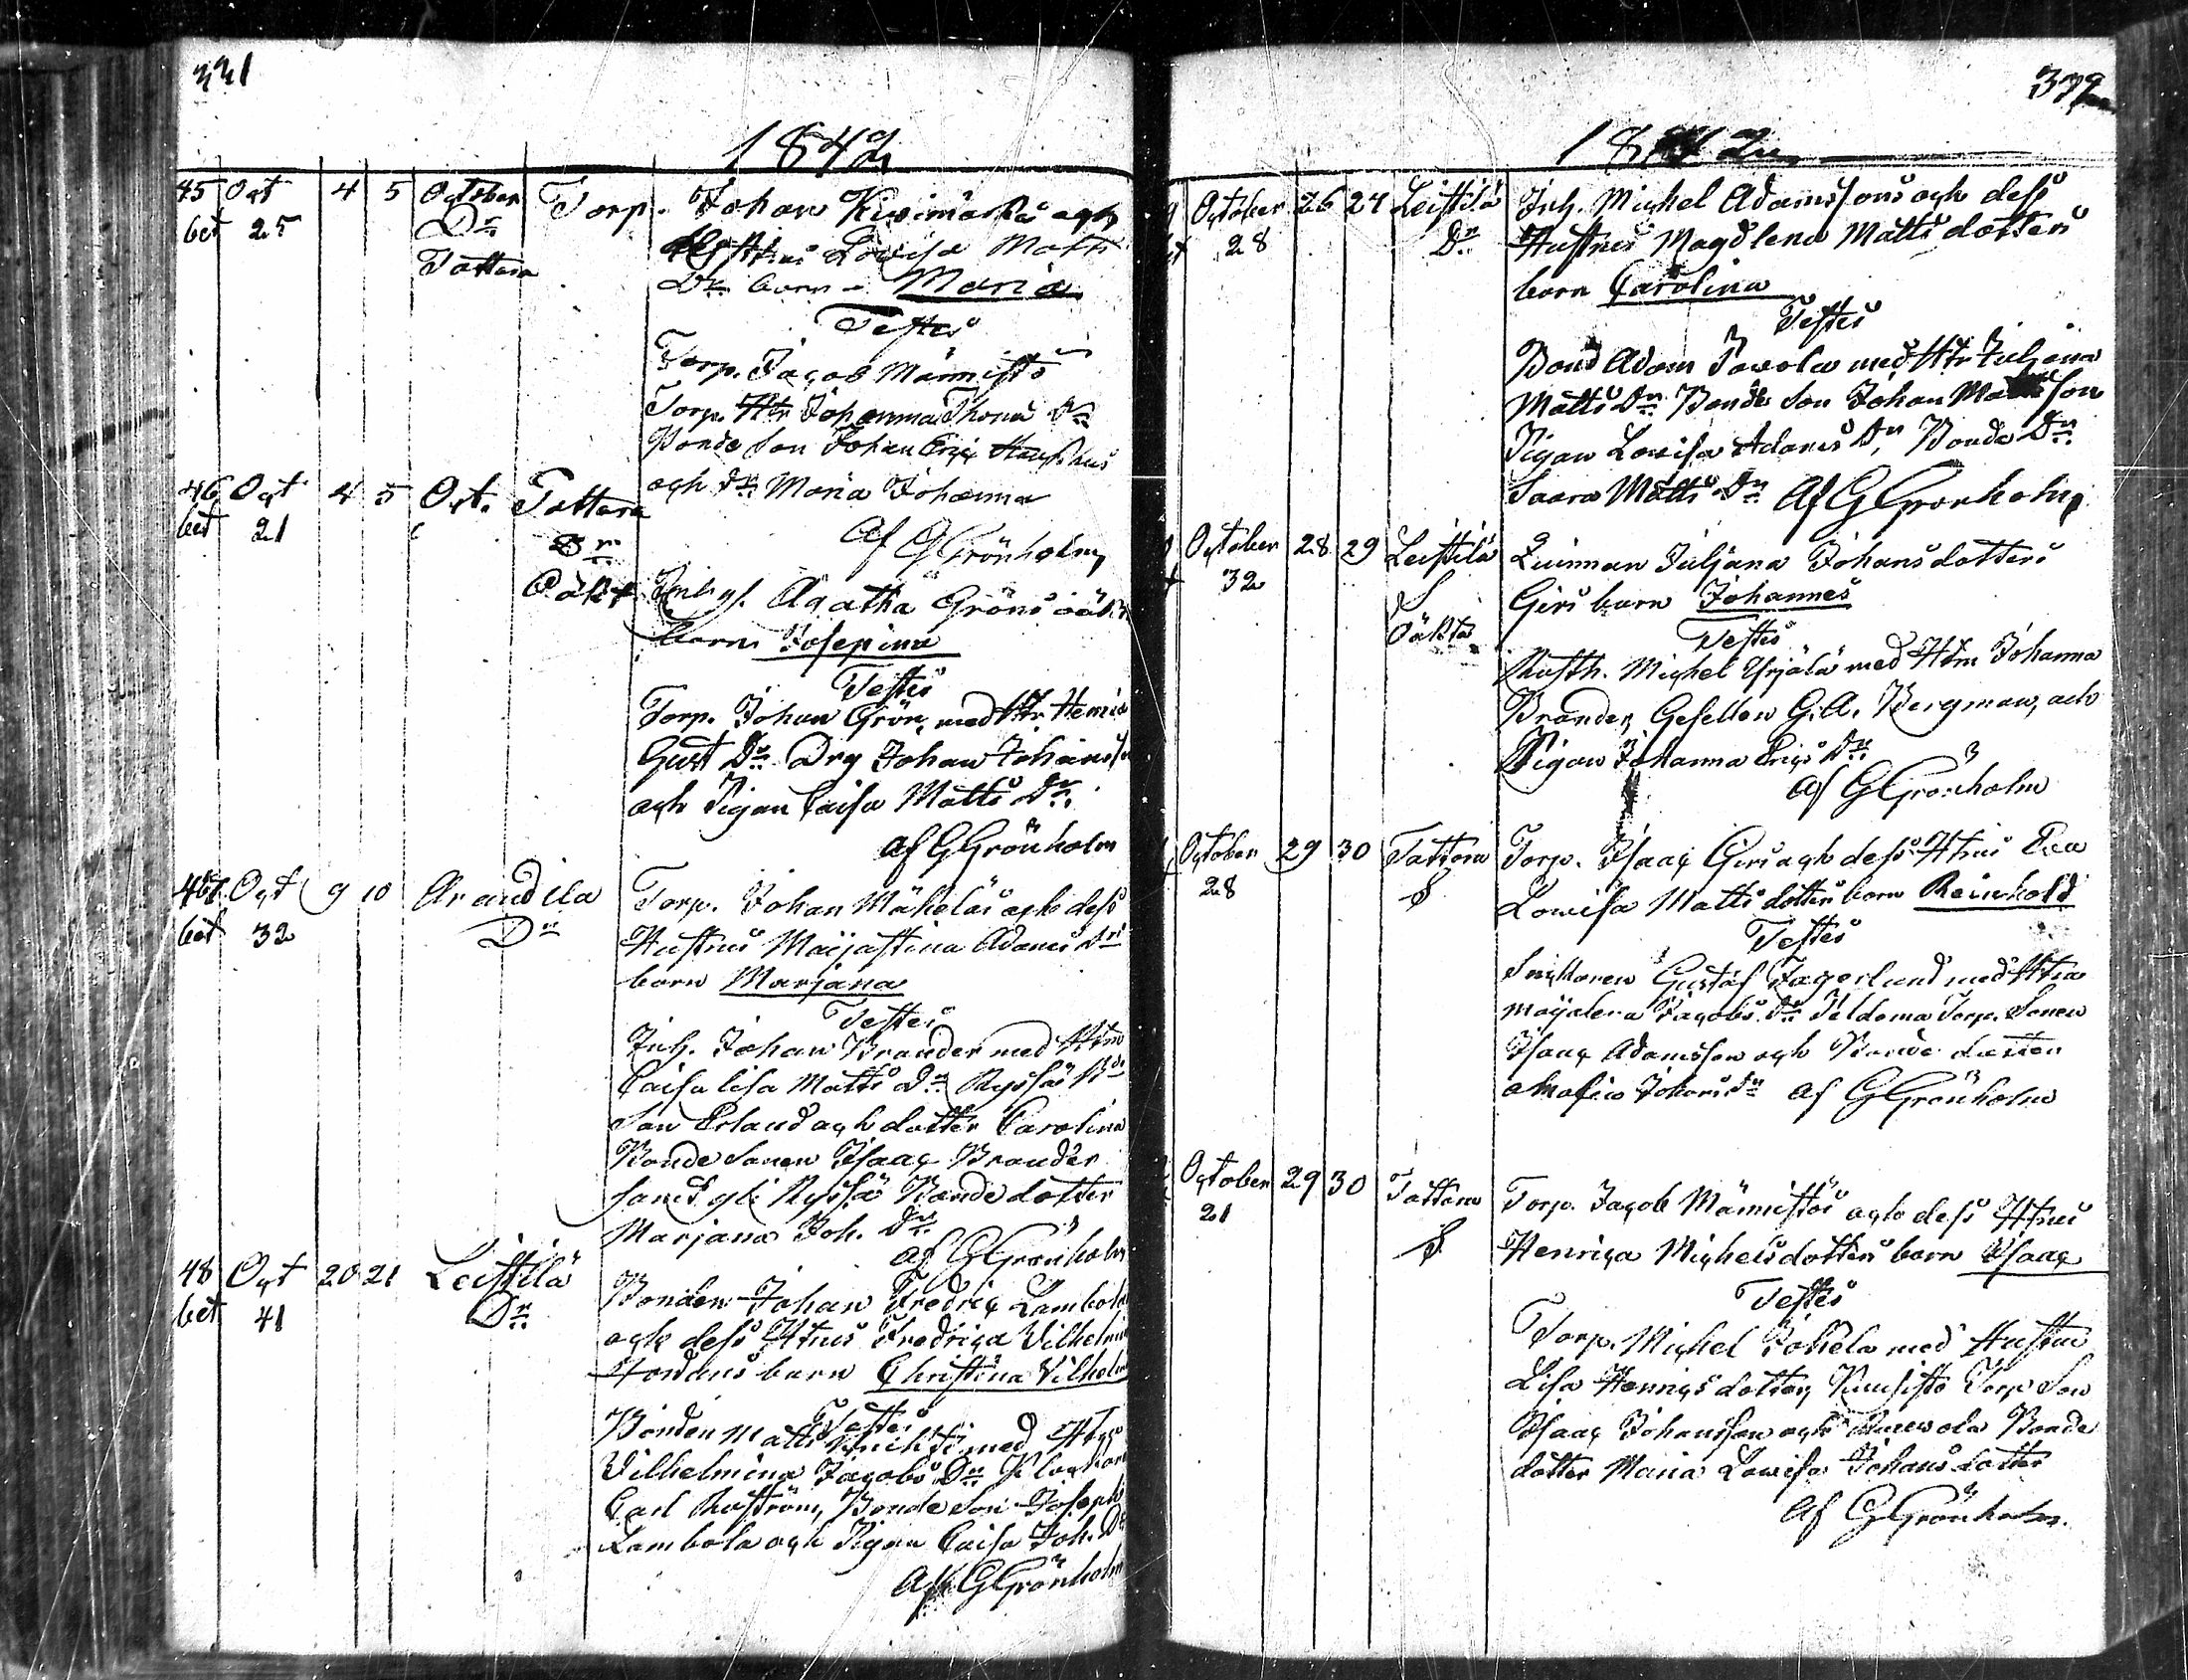 331
1842
45 Oct 4 5 October Torp. Johan Kivimäkis och
bet 25 Dr Hustrus Lovisa Matts
Tattara Dr barn - Maria
Testes
Torp. Jacob Männistö
Torp. Htr Johanna Thomas Dr
Bonde Son Johan Eric
och Dr Maria Johanna
Af G Grönholm
46 Oct 4 5 Oct. Tattara
bet 21 Dr
Oäkt Inhys. Agatha Gröns oäkt
barn Josepina
Testes
Torp. Johan Grön, med Htr
Gust Dr Drg Johan Johans
och Pigan Caisa Matts Dr
Af G Grönholm
Oct 9 10 Arandila Torp. Johan Mäkeläs och dess
bet 32 Dr Hustrus Maijastina Adams Dr
barn Marjana
Testes
Inh. Johan Brander med Htru
Caisa Lisa Matts Dr Ryssäs Bde
Son Erland och dotter Carolina
Bonde Sonen Isaac Brander
samt Ryssä Bonde dotter
Marjana Joh. Dr
Af G Grönholm
48 Oct 20 21 Leistilä Bonden Johan Fredric Lambola
bet 41 Dr och dess Htrus Fredrica Vilhelmina
barn Christina Vilhelm
Testes
Bonden Matts med
Vilhelmina Jacobs Dr
Carl Bonde Son Joseph
Lambola och Pigan Caisa Joh. Dr
Af G Grönholm
332
1842
October 26 27 Leistilä Inh. Michel Adamssons och dess
28 Dr Hustrus Magdlena Mattsdotters
barn Carolina
Testes
Bond Adam med Htr Juljana
Matts Dr Bonde Son Johan Matsson
Pigan Lovisa Adams Dr, Bonde Dr
Saara Matts Dr Af G Grönholm
October 28 29 Leistilä Qvinnan Juljana Johansdotters
32 S
Oäkta Girs barn Johannes
Testes
Rusth. Michel Yrjälä med Htru Johanna
Brander, Gesellen G. A. Bergman, och
Pigan Johanna Erics Dr
Af G Grönholm
October 29 30 Tattara Torp. Isaac Girs och dess Htrus Eva
28 S Lovisa Mattsdotters barn Reinhold
Testes
Snickaren Gustaf Fagerlund med Htru
Jacobs Dr Torp. Sonen
Isaac Adamsson och Bonde dotter
Johans Dr Af G Grönholm
October 29 30 Tattara Torp. Jacob Männistös och dess Htrus
21 S Henrica Michelsdotters barn Isaac
Testes
Torp. Michel Jokela med Hustru
Lisa Henricsdotter, Torp Son
Isaac Johansson och Bonde
dotter Maria Lovisa Johansdotter
Af G Grönholm.